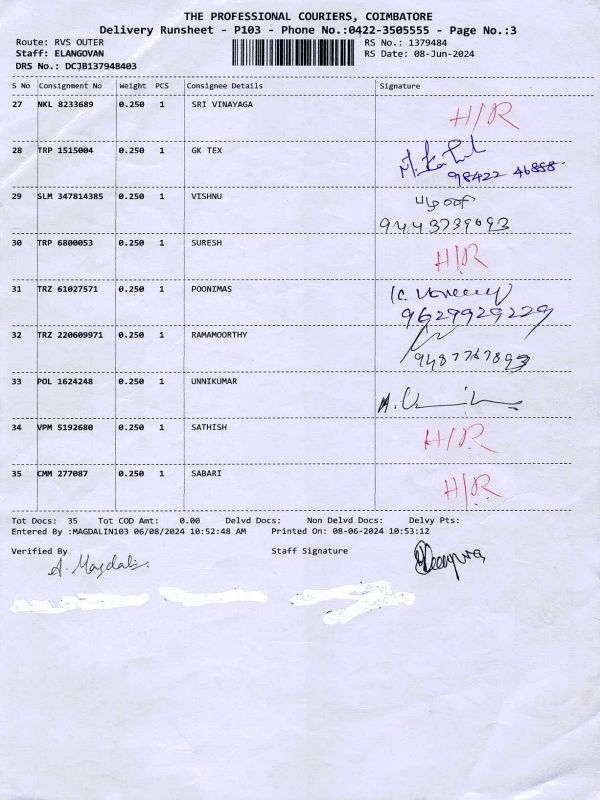 THE PROFESSIONAL COURIERS, COIMBATORE
Delivery Runsheet - P103 - Phone No.:0422-3505555 - Page No.:3
Route: RVS OUTER RS No.: 1379484
Staff: ELANGOVAN RS Date: 08-Jun-2024
DRS No.: DCJB137948403
S No Consignment No Weight PCS Consignee Details Signature
27 NKL 8233689 0.250 1 SRI VINAYAGA H/R
28 TRP 1515004 0.250 1 GK TEX
98422 46888
29 SLM 347814385 0.250 1 VISHNU
9443739693
30 TRP 6800053 0.250 1 SURESH H/R
31 TRZ 61027571 0.250 1 POONIMAS
9629929229
32 TRZ 220609971 0.250 1 RAMAMOORTHY
9487767893
33 POL 1624248 0.250 1 UNNIKUMAR
34 VPM 5192680 0.250 1 SATHISH H/R
35 CMM 277087 0.250 1 SABARI H/R
Tot Docs: 35 Tot COD Amt: 0.00 Delvd Docs: Non Delvd Docs: Delvy Pts:
Entered By :MAGDALIN103 06/08/2024 10:52:48 AM Printed On: 08-06-2024 10:53:12
Verified By Staff Signature
A. Magdalin